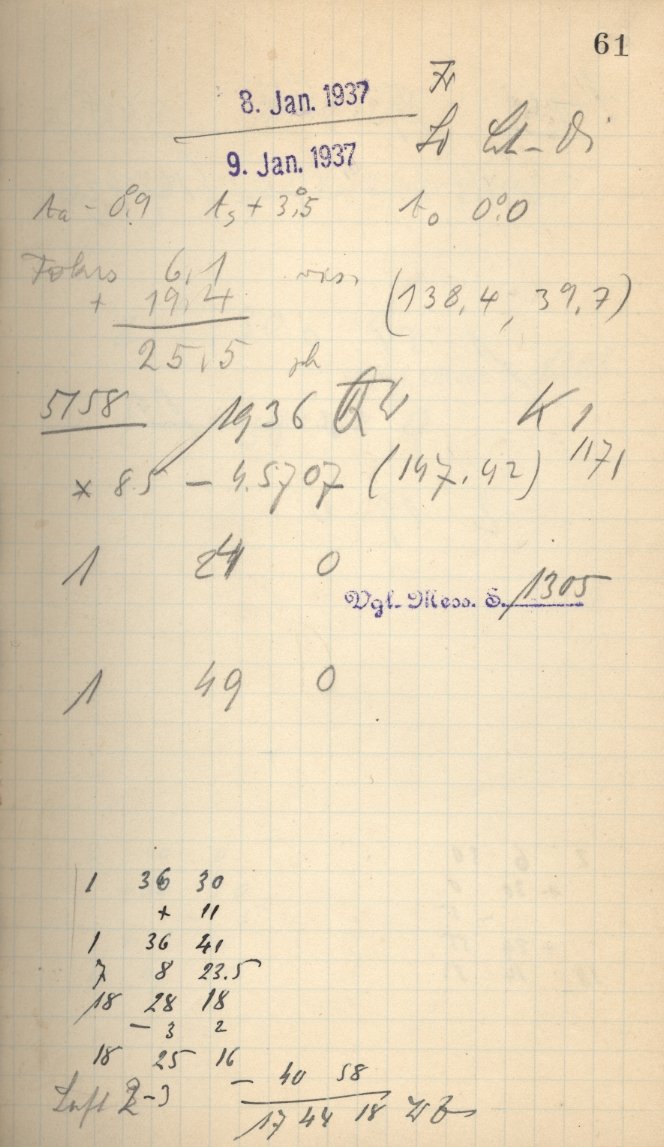 61
8. Jan. 1937
9. Jan. 1937
ta - 0°,9 ts + 3°,5 to 0°,0
Fokus 6,1 (138,4, 39,7)
+ 19,4
25,5 ph
5158 1936 K 1
* 8.5 - 4.5707 (147.42) 1171
1 24 0
Vgl.-Mess. S. 1305
1 49 0
1 36 30
+ 11
1 36 41
7 8 23.5
18 28 18
- 3 2
18 25 16
Luft 2-3 - 40 58
17 44 18